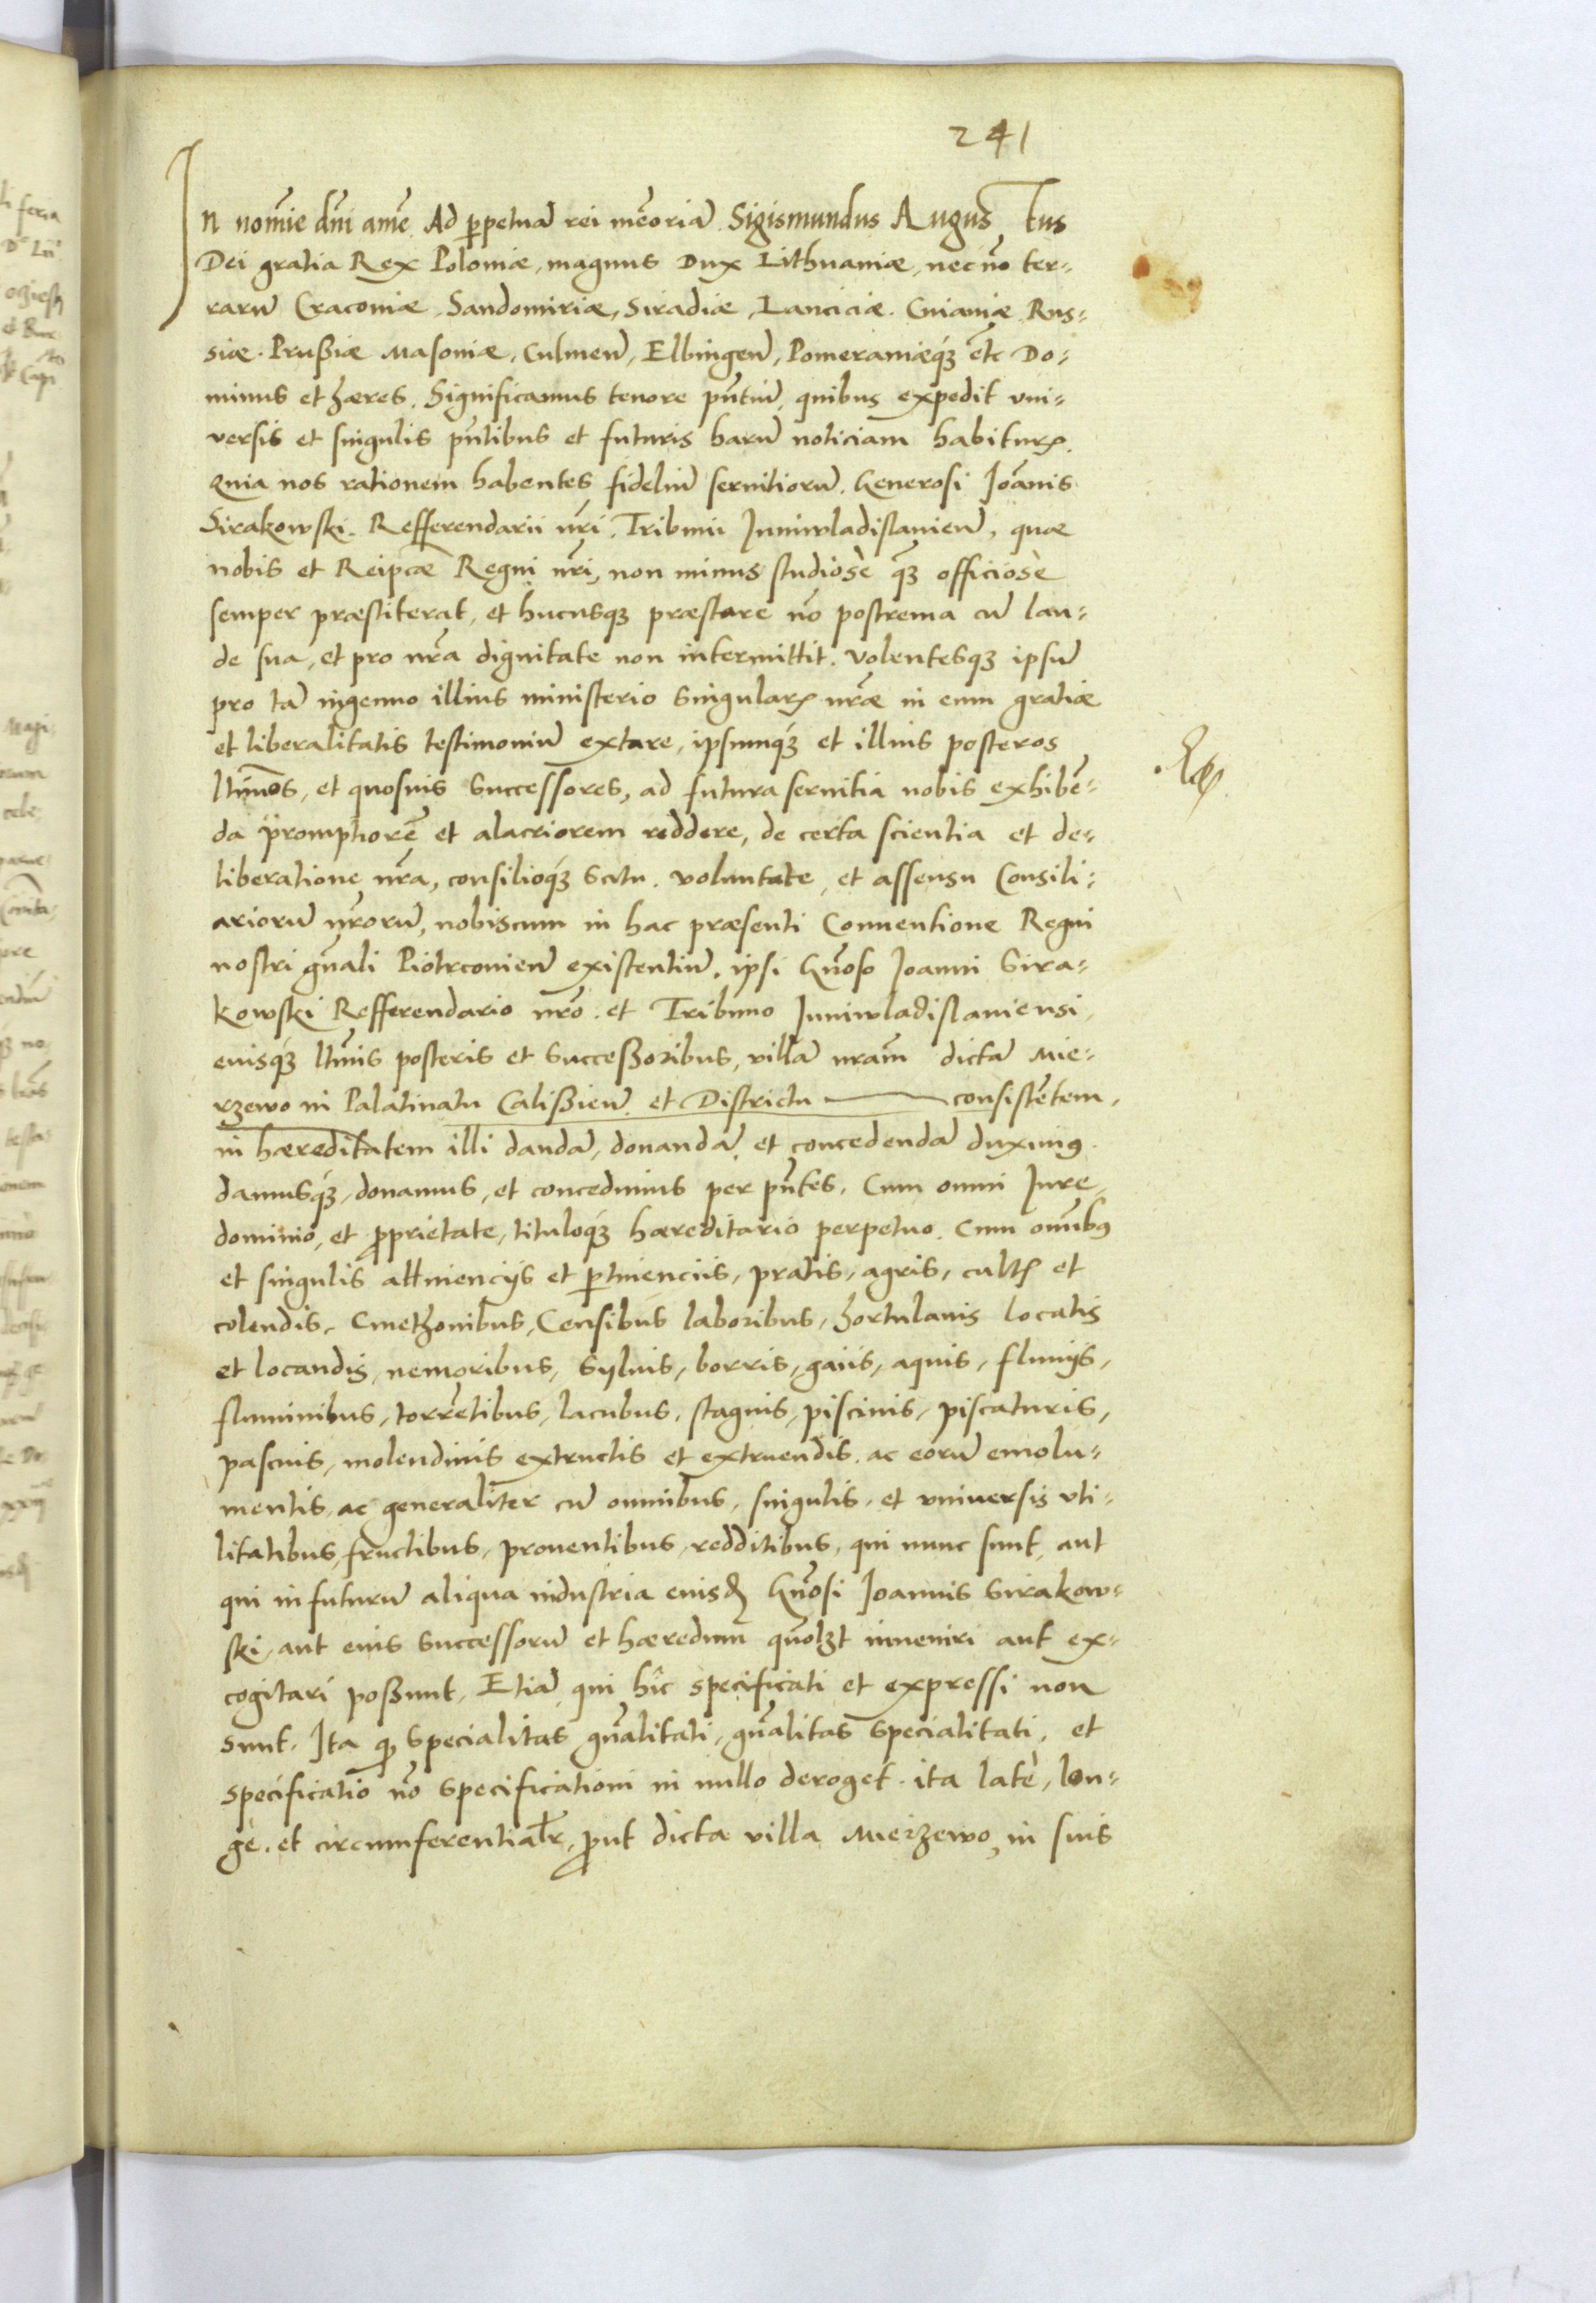 241
In nomie dni ame Ad ꝑpetuā rei meoriā Sigismundus Augustus
Dei gratia Rex Poloniæ, magnus Dux Lithuaniæ, necnō ter-
rarū Cracoviæ, Sandomiriæ, Siradiæ, Lanciciæ. Cuiaviæ Rus-
siæ. Prußiæ Masoviæ, Culmeñ, Elbingeñ, Pomeraniæqꝫ etc Do-
minus et hæres. Significamus tenore pñtiū, quibus expedit vni-
versis et singulis pñtibus et futuris harū noticiam habituꝝ.
Quia nos rationem habentes fideliū seruitiorū. Generosi Joānis
Sirakowski. Refferendarii nri. Tribuni Juniwladislauieñ, quae
nobis et Reipcæ Regni nri, non minus studiosè qꝫ officiosè
semper præstiterat, et hucusqꝫ præstare nō postrema cū lau-
de sua, et pro nra dignitate non intermittit. Volentesqꝫ ipsū
pro tā ingenuo illius ministerio singulaꝝ nræ in eum gratiæ
et liberalitatis testimoniū extare, ipsumqꝫ et illius posteros
ltimos, et quosuis successores, ad futura seruitia nobis exhibē-
da promptiorē et alacriorem reddere, de certa scientia et de-
liberatione nra, consilioqꝫ scitu. voluntate, et assensu Consili-
ariorū nrorū, nobiscum in hac præsenti Conuentione Regni
nostri gñali Piotrcovieñ existentiū. ipsi Gñoso Joanni Sira-
kowski Refferendario nro. et Tribuno Juniwladislauiensi,
eiusqꝫ ltimis posteris et Succeßoribus, villā nram dictā Mie-
rzewo in Palatinatu Calißieñ et Districtu — consistētem,
in hæreditatem illi dandā, donandā, et concedendā duximꝰ
damusqꝫ, donamus, et concedimus per pñtes. Cum omni Jure,
dominio, et ꝓprietate, tituloqꝫ hæreditario perpetuo. Cum omībꝰ
et singulis attinencijs et ꝑtinenciis, pratis, agris, cultꝭ et
colendis, Cmethonibus, Censibus laboribus, hortulanis locatis
et locandis, nemoribus, Syluis, borris, gaiis, aquis, fluuijs,
fluminibus, torrētibus, lacubus, stagnis, piscinis, piscaturis,
pascuis, molendinis extructis et extruendis, ac eorū emolu-
mentis, ac generaliter cū omnibus, singulis, et vniuersis vti-
litatibus, fructibus, prouentibus, redditibus, qui nunc sunt, aut
qui in futurū aliqua industria eiusđ Gñosi Joannis Sirakow-
ski, aut eius successorū et hæredum quolꝫt inueniri aut ex-
cogitari poßunt, Etiā qui hîc specificati et expressi non
sunt. Ita ꝙ specialitas gñalitati, gñalitas specialitati, et
specificatio nō specificationi in nullo deroget. ita latè, lon-
gè. et circumferentialr, ꝓut dicta villa Mierzewo, in suis